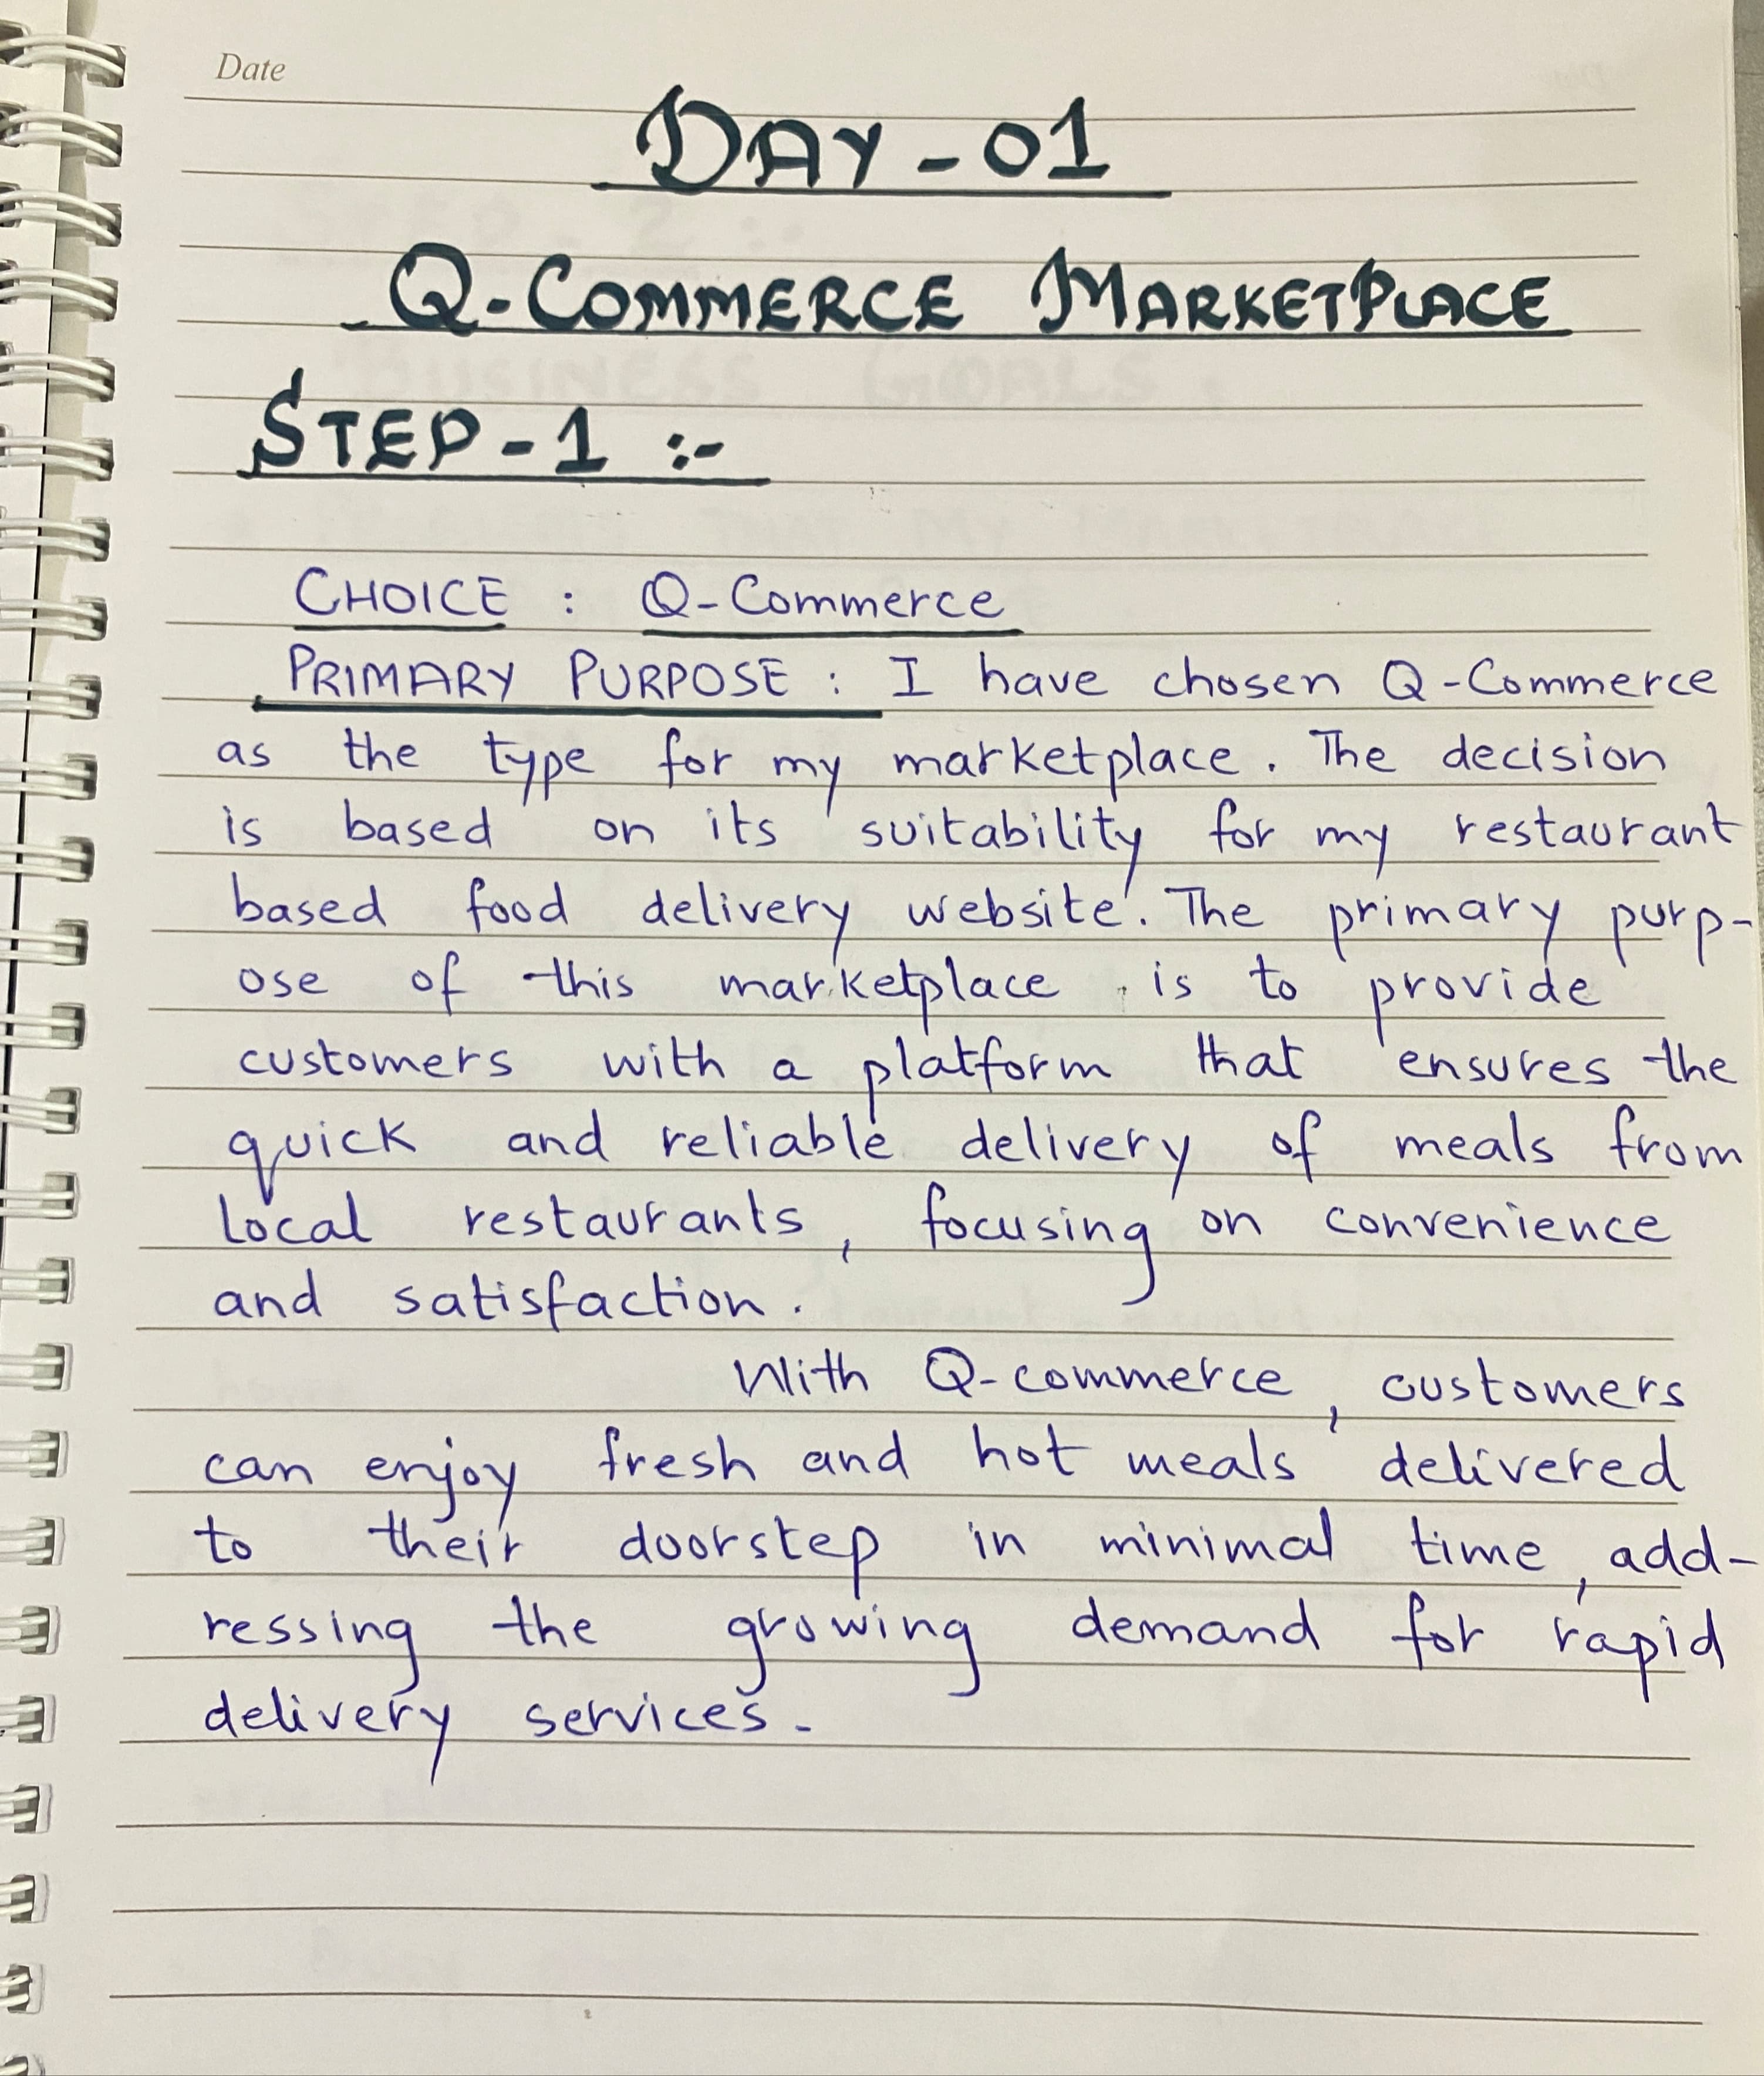 Date
DAY-01
Q-COMMERCE MARKETPLACE
STEP-1 :-
CHOICE : Q-Commerce
PRIMARY PURPOSE : I have chosen Q-Commerce
as the type for my marketplace. The decision
is based on its suitability for my restaurant
based food delivery website. The primary purp-
ose of this marketplace is to provide
customers with a platform that ensures the
quick and reliable delivery of meals from
local restaurants, focusing on convenience
and satisfaction.
With Q-commerce, customers
can enjoy fresh and hot meals delivered
to their doorstep in minimal time, add-
ressing the growing demand for rapid
delivery services.